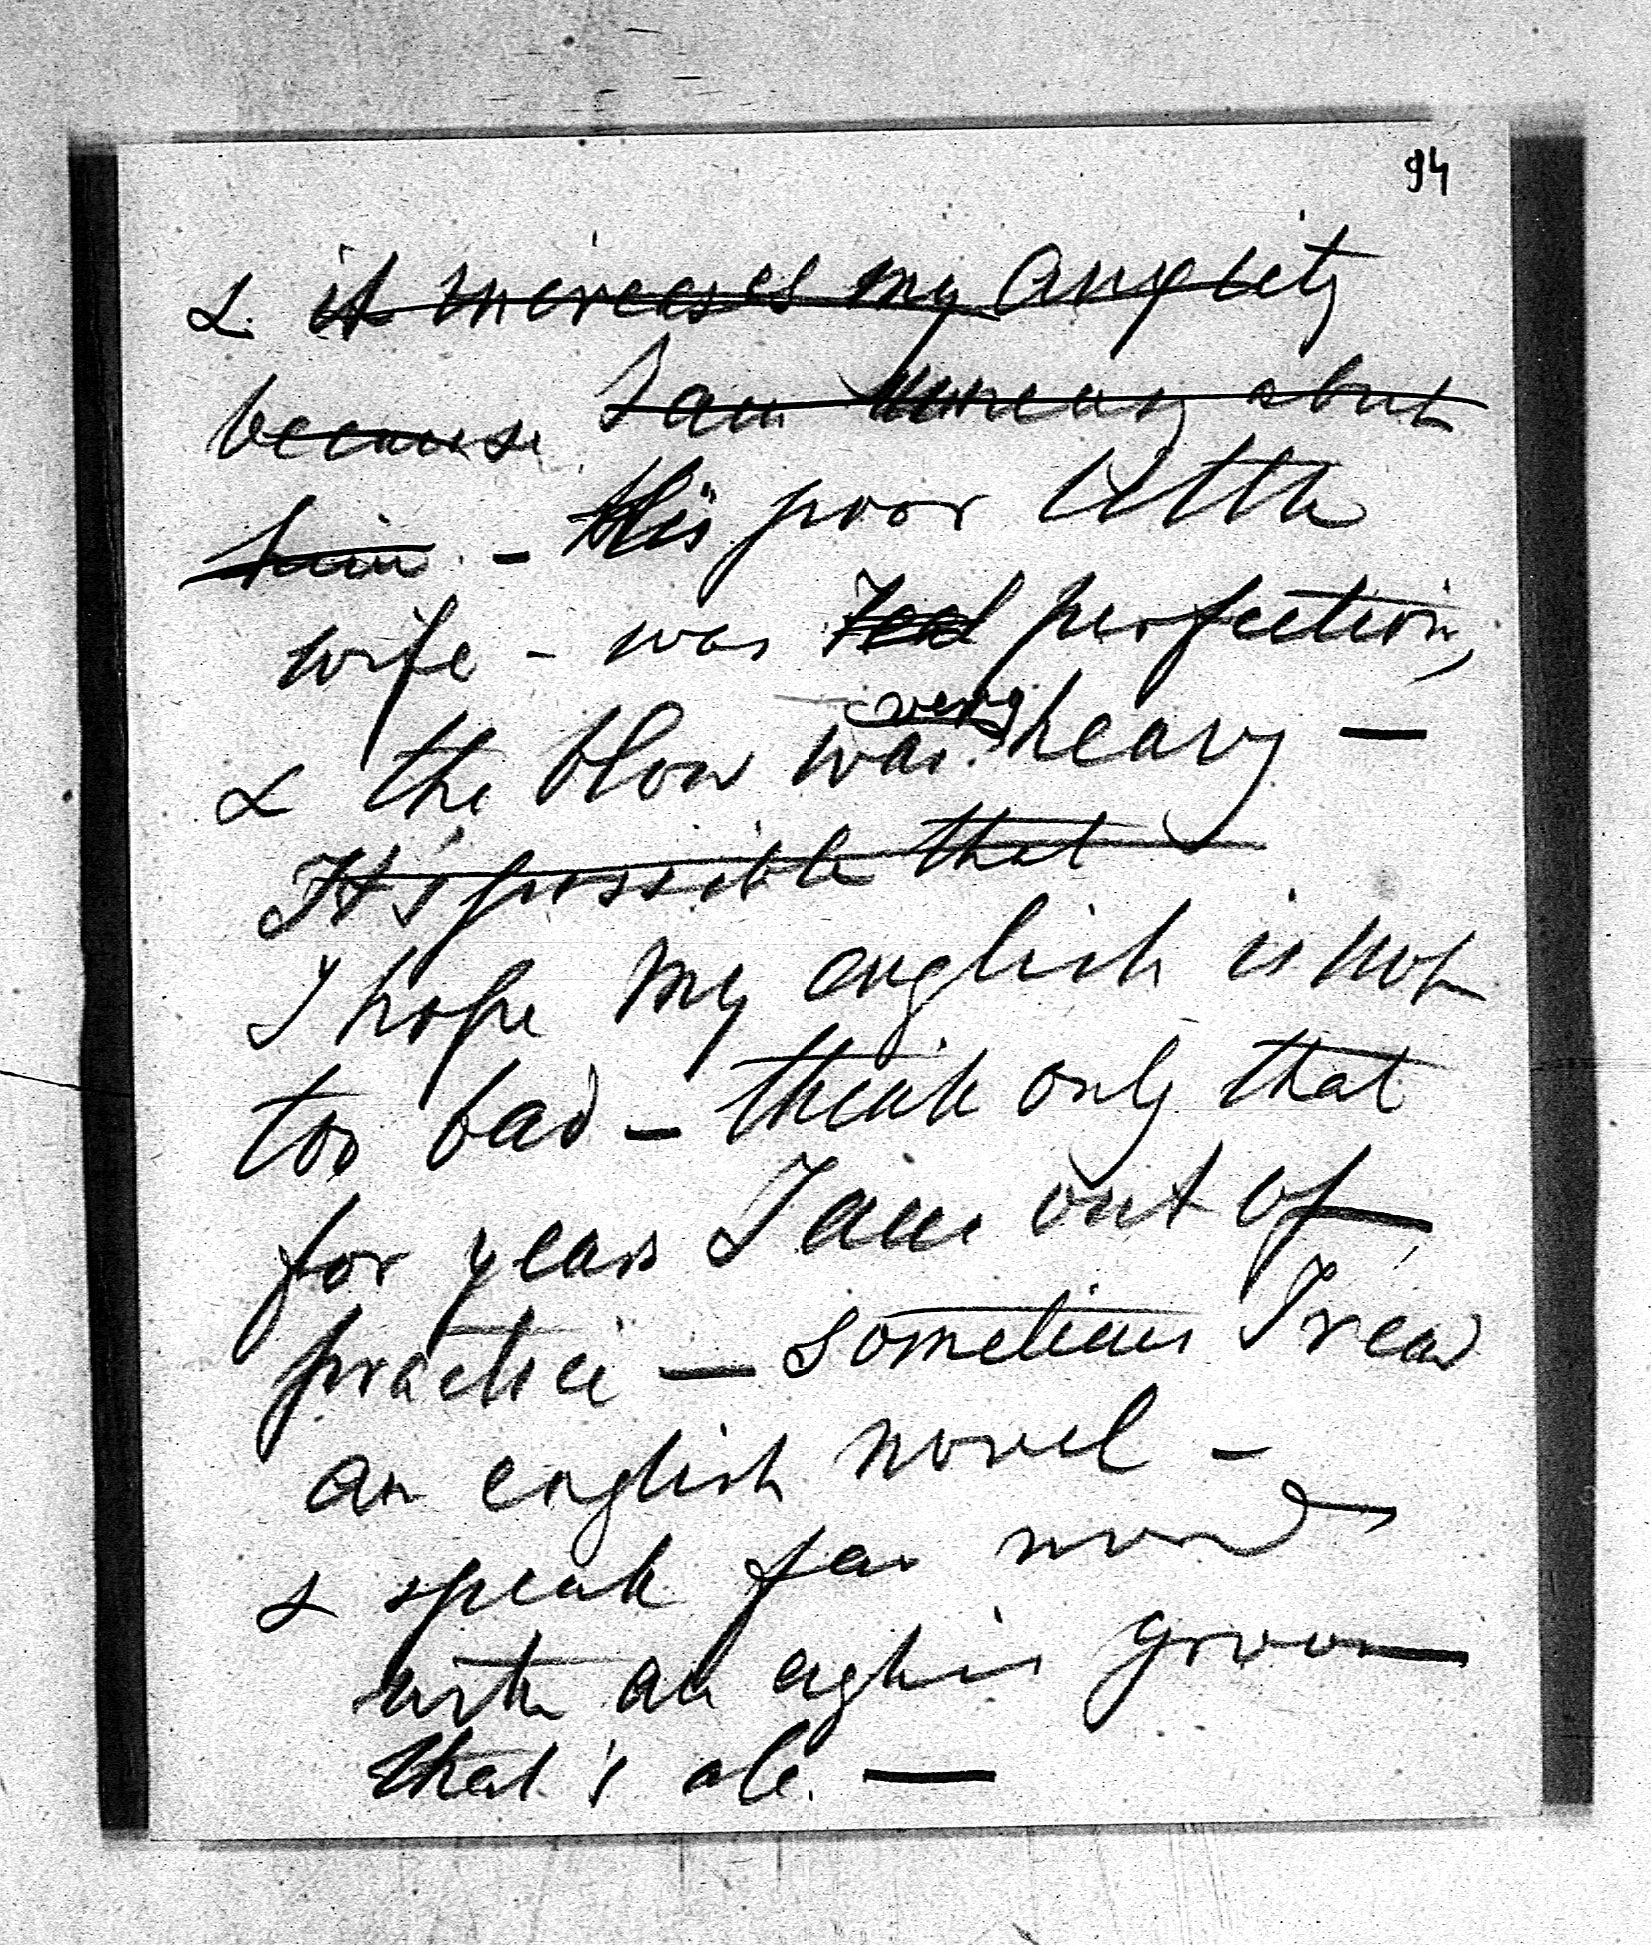 94
& it increases my anxiety
because I am uneasy about
him - his poor little
wife - was perfection,
& the blow was very heavy —
It's possible that
I hope my english is not
too bad — think only that
for years I am out of
practice — sometimes I read
an english novel -
& speak few words
with an english groom
that's all. —